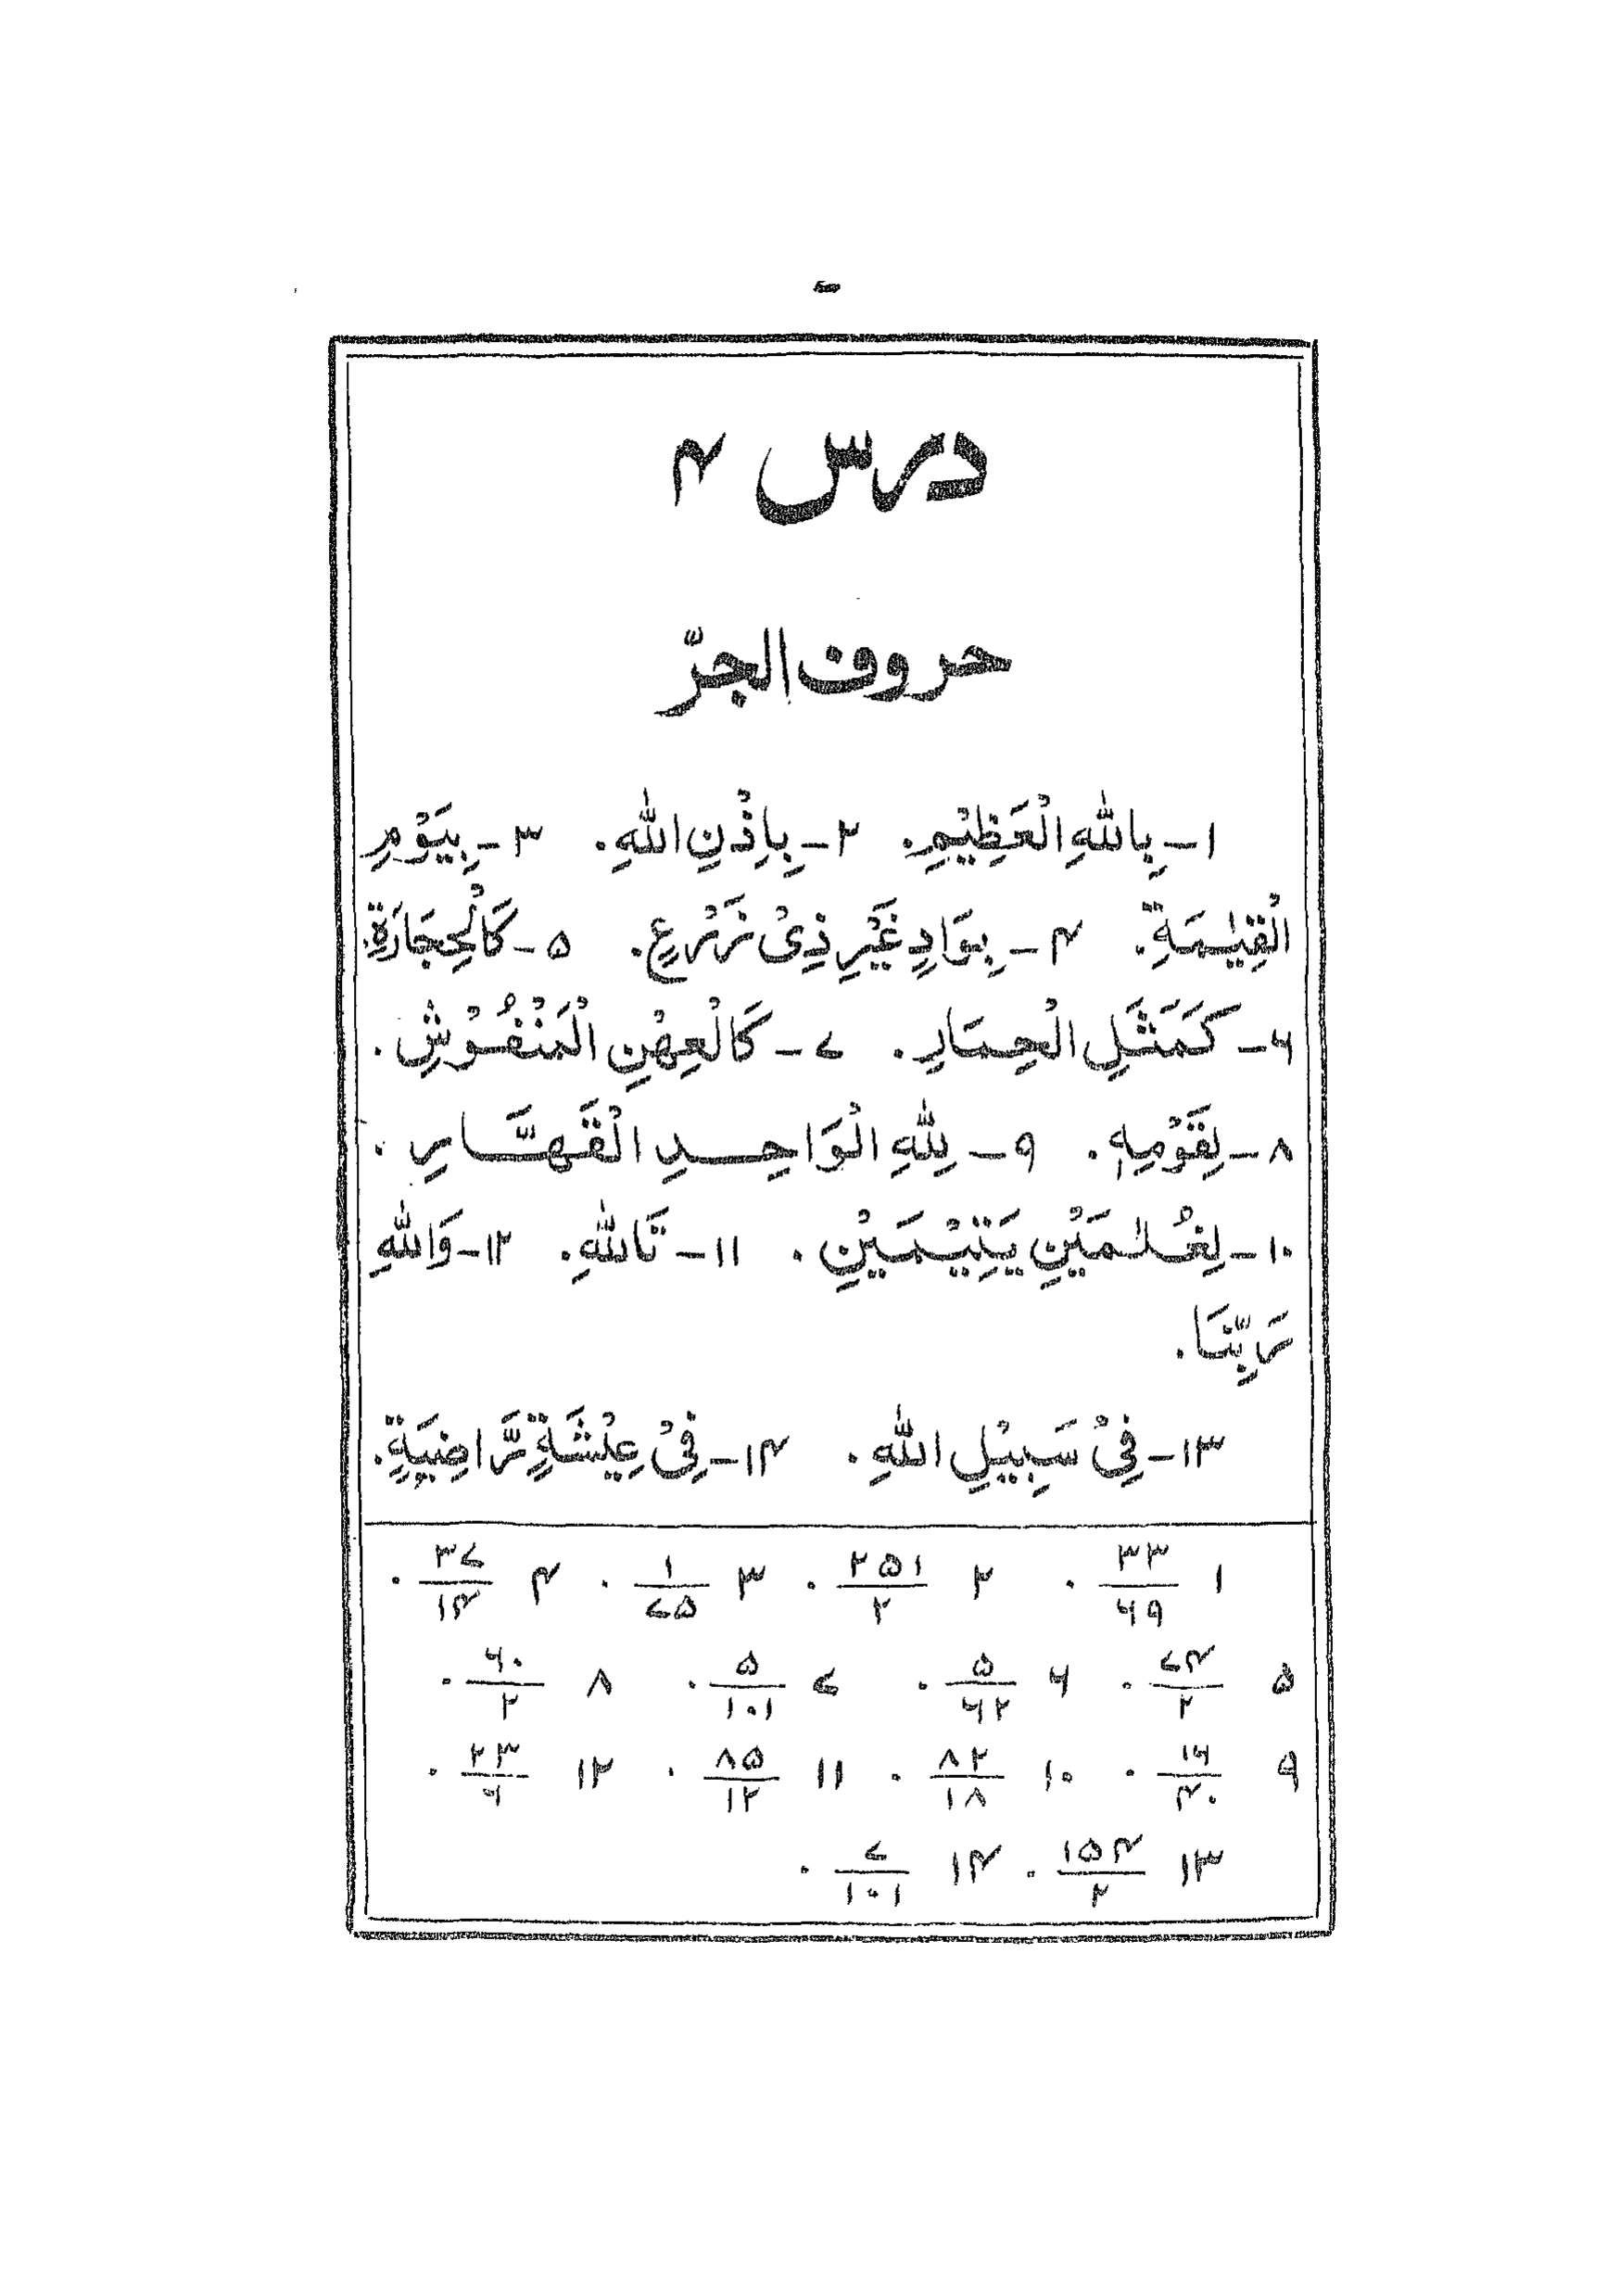 درس ۴
حروف الجرّ
۱ـ بِاللّٰهِ الْعَظِيْمِ. ۲ـ بِاِذْنِ اللّٰهِ. ۳ـ بِيَوْمِ
الْقِيٰمَةِ. ۴ـ بِوَادٍ غَيْرِ ذِىْ زَرْعٍ. ۵ـ كَالْحِجَارَةِ.
۶ـ كَمَثَلِ الْحِمَارِ. ۷ـ كَالْعِهْنِ الْمَنْفُوْشِ.
۸ـ لِقَوْمِهٖ. ۹ـ لِلّٰهِ الْوَاحِدِ الْقَهَّارِ.
۱۰ـ لِغُلٰمَيْنِ يَتِيْمَيْنِ. ۱۱ـ تَاللّٰهِ. ۱۲ـ وَاللّٰهِ
رَبِّنَا.
۱۳ـ فِىْ سَبِيْلِ اللّٰهِ. ۱۴ـ فِىْ عِيْشَةٍ رَّاضِيَةٍ.
۱ ۳۳/۶۹ . ۲ ۲۵۱/۲ . ۳ ۱/۷۵ . ۴ ۳۷/۱۴ .
۵ ۷۴/۲ . ۶ ۵/۶۲ . ۷ ۵/۱۰۱ . ۸ ۶۰/۲ .
۹ ۱۶/۴۰ . ۱۰ ۸۲/۱۸ . ۱۱ ۸۵/۱۲ . ۱۲ ۲۳/۶ .
۱۳ ۱۵۴/۲ . ۱۴ ۷/۱۰۱ .